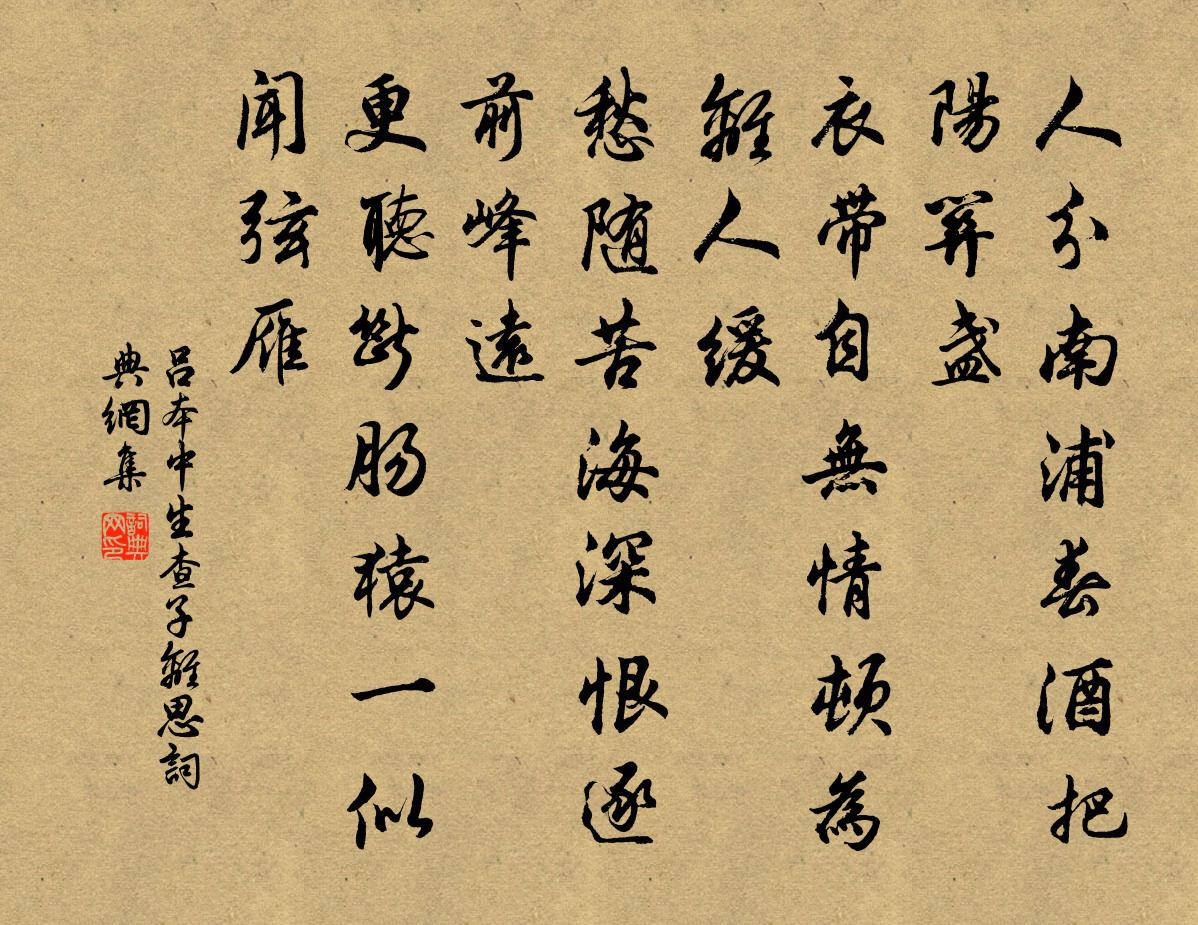 人分南浦春酒把
陽關盞
衣带自無情頓為
離人緩
愁随苦海深恨逐
前峰遠
更聽斷腸猿一似
闻弦雁
吕本中生查子離思詞
典網集
詞典
网印